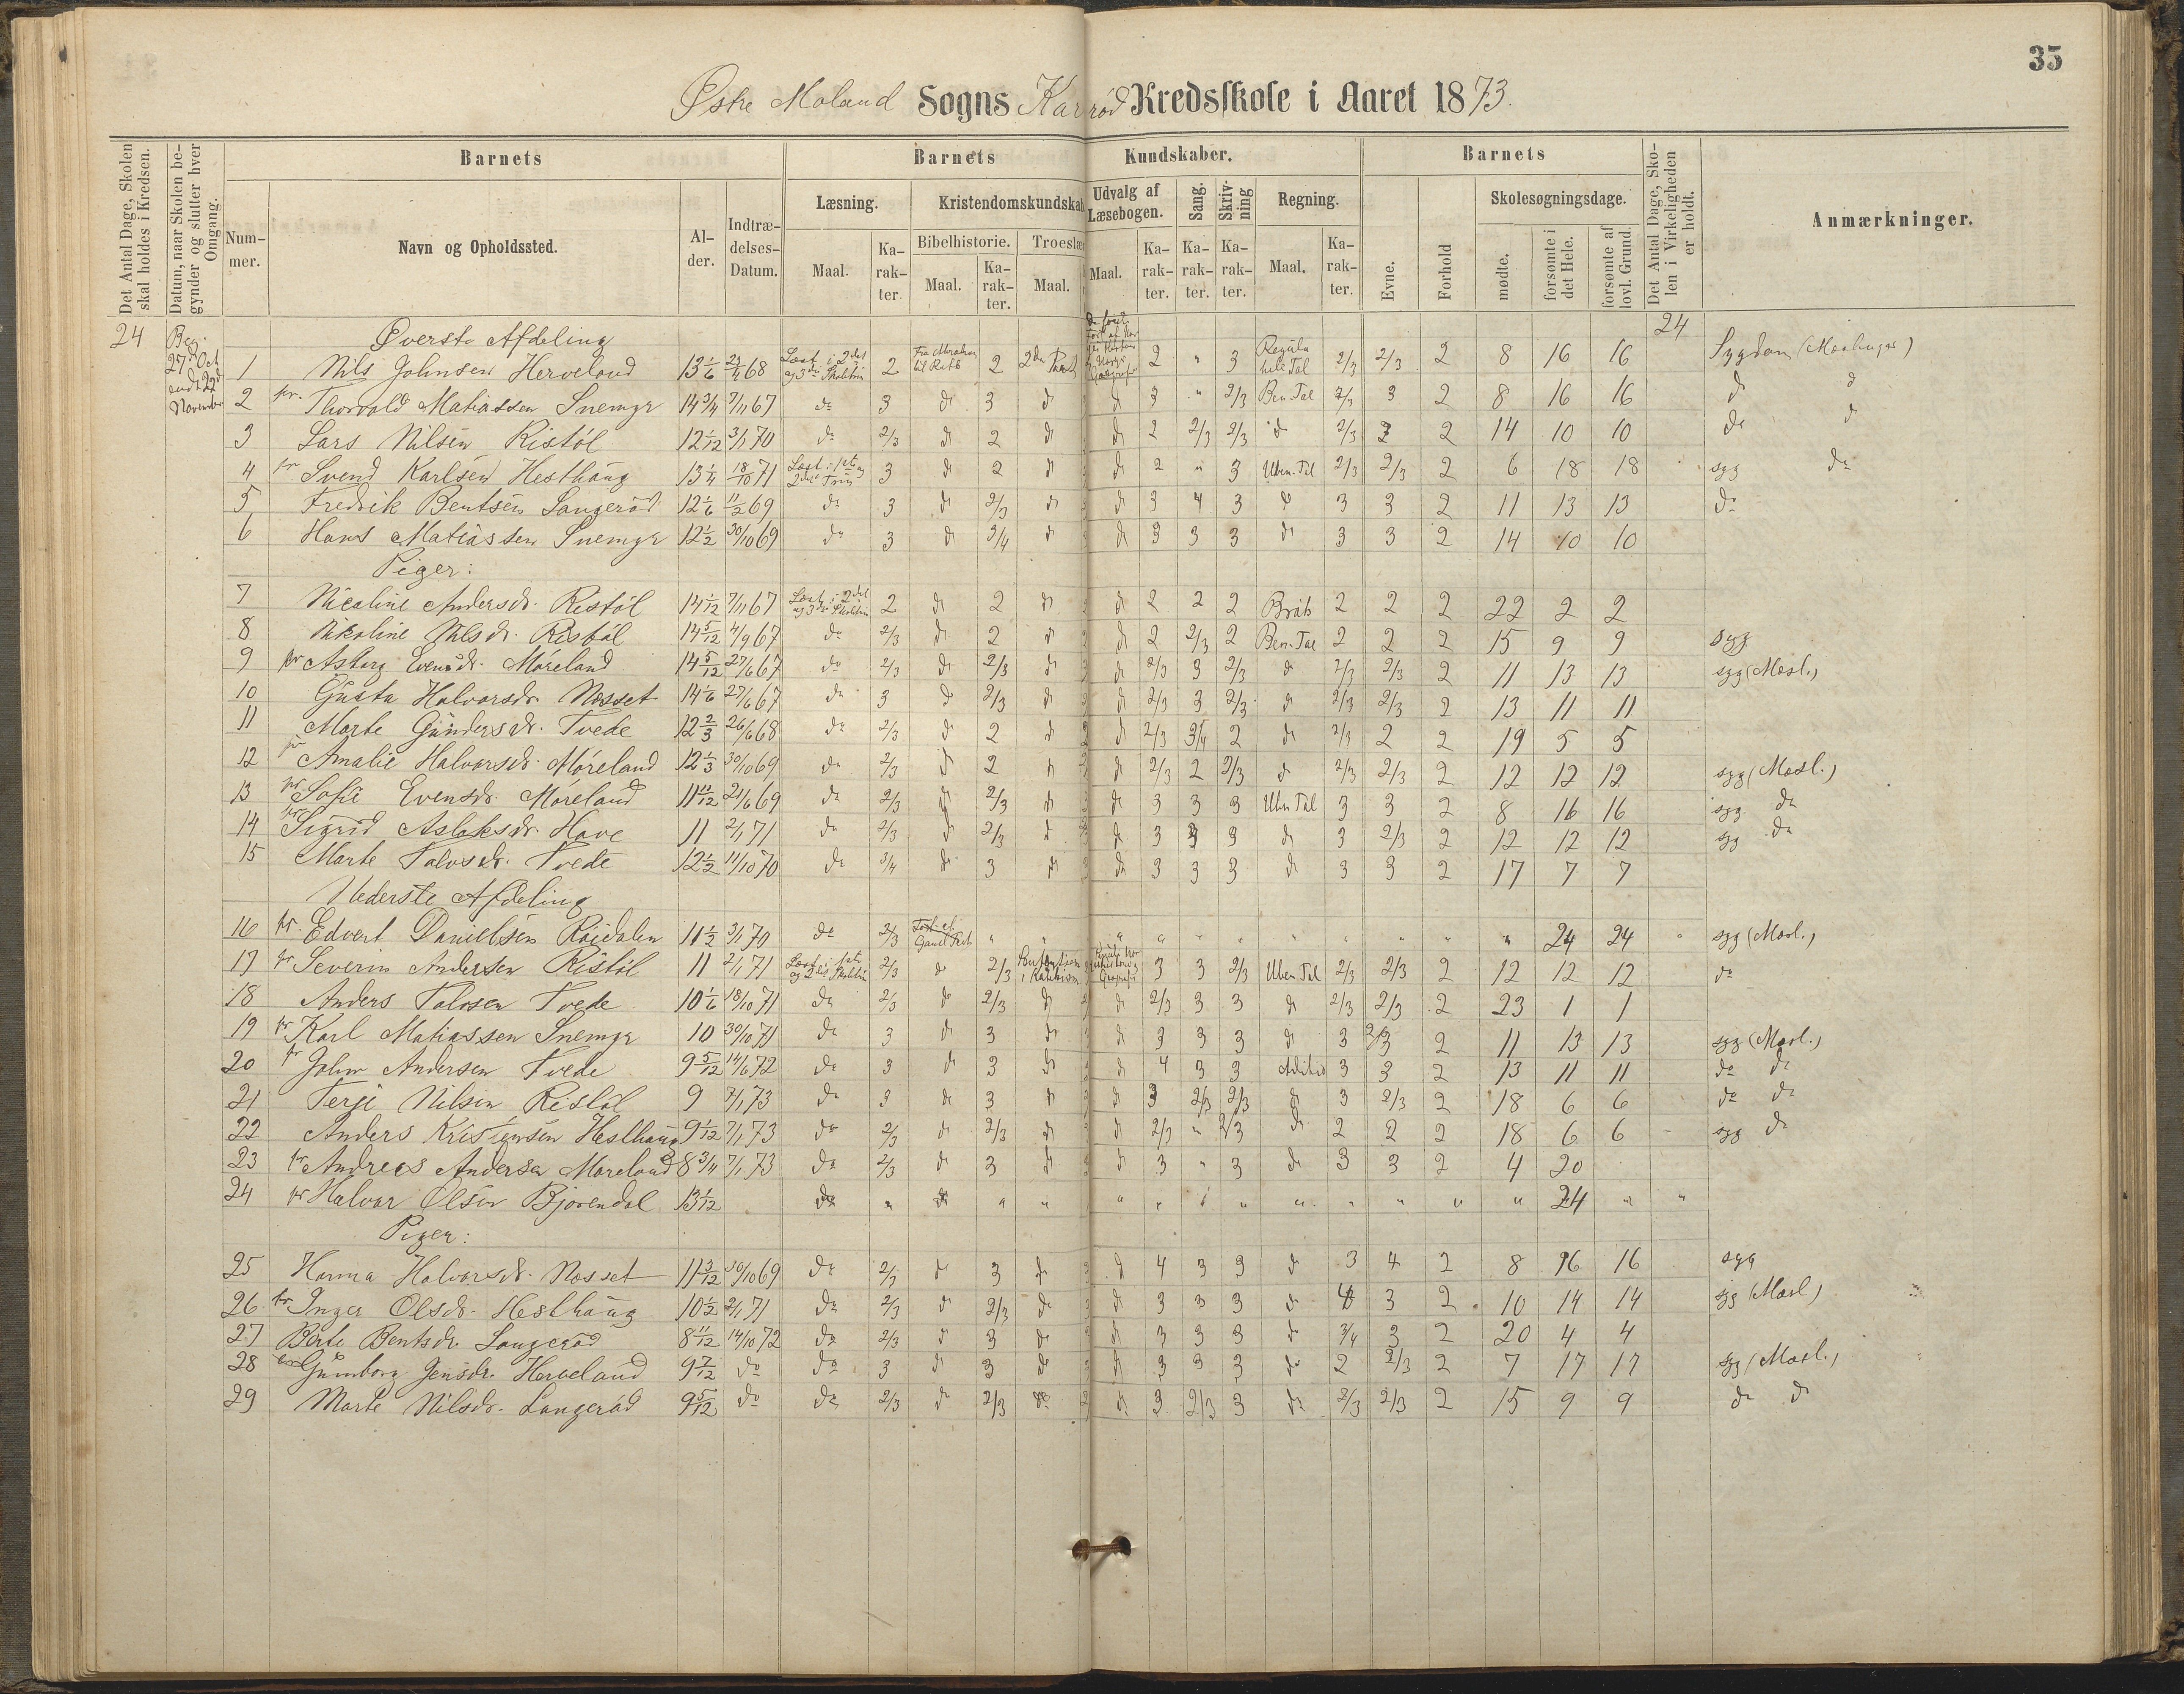 35
Østre Moland Sogns Karrød Kredsskole i Aaret 1873.
Det Antal Dage, Skolen skal holdes i Kredsen.
Datum, naar Skolen begynder og slutter hver Omgang.
Barnets
Barnets Kundskaber.
Barnets
Det Antal Dage, Skolen i Virkeligheden er holdt.
Anmærkninger.
Nummer.
Navn og Opholdssted.
Alder.
Indtrædelses-Datum.
Læsning.
Kristendomskundskab
Udvalg af Læsebogen.
Sang.
Skrivning
Regning.
Evne.
Forhold
Skolesøgningsdage.
Maal.
Karakter.
Bibelhistorie.
Troeslær
Maal.
Karakter.
Maal.
Maal.
Karakter.
Karakter.
Karakter.
Maal.
Karakter.
mødte.
forsømte i det Hele.
forsømte af lovl. Grund.
24 Beg. 27de Oct endt 22d November
Øverste Afdeling 24
1 Nils Johnsen Herveland 13 1/6 23/4 68 Læst i 2det og 3die Skoletrin 2 2 2den Part 2 " 3 Regula hele Tal 2/3 2/3 2 8 16 16 Sygdom (Mæslinger)
2 fr. Thorvald Matiassen Snemyr 14 3/4 7/11 67 do 3 do 3 do do 3 " 2/3 Ben. Tal 2/3 3 2 8 16 16 do do
3 Lars Nilsen Ristöl 12 1/12 3/1 70 do 2/3 do 2 do do 2 2/3 2/3 do 2/3 2 2 14 10 10 do do
4 fr Svend Karlsen Hesthaug 13 1/4 18/10 71 Læst i 1ste og 2det Trin 3 do 2 do do 2 " 3 Uben. Tal 2/3 2/3 2 6 18 18 syg do
5 Fredrik Bentsen Langeröd 12 1/6 11/2 69 do 3 do 2/3 do do 3 4 3 do 3 3 2 11 13 13 do
6 Hans Matiassen Snemyr 12 1/2 30/10 69 do 3 do 3/4 do do 3 3 3 do 3 3 2 14 10 10
Piger:
7 Nicoline Andersdr. Ristöl 14 1/12 7/11 67 Læst i 2det og 3die Skoletrin 2 do 2 do do 2 2 2 Bråk 2 2 2 22 2 2
8 Nikoline Nilsdr. Ristöl 14 5/12 4/9 67 do 2/3 do 2 do do 2 2/3 2 Ben. Tal 2 2 2 15 9 9 syg
9 fr Asborg Evensdr. Möreland 14 5/12 27/6 67 do 2/3 do 2/3 do do 2/3 3 2/3 do 2/3 2/3 2 11 13 13 syg (Mæsl.)
10 Gusta Halvorsdr. Nosset 14 1/6 27/6 67 do 3 do 2/3 do do 2/3 3 2/3 do 2/3 2/3 2 13 11 11
11 Marte Gundersdr. Tvede 12 2/3 26/6 68 do 2/3 do 2 do do 2/3 3/4 2 do 2/3 2 2 19 5 5
12 fr Amalie Halvorsdr. Möreland 12 1/3 30/10 69 do 2/3 do 2 do do 2/3 2 2/3 do 2/3 2/3 2 12 12 12 syg (Mæsl.)
13 fr Sofie Evensdr. Möreland 11 11/12 21/6 69 do 2/3 do 2/3 do do 3 3 3 Uben Tal 3 3 2 8 16 16 syg do
14 fr Sigrid Aslaksdr. Hove 11 2/1 71 do 2/3 do 2/3 do do 3 3 3 do 3 2/3 2 12 12 12 syg do
15 Marte Talvsdr. Tvede 12 1/2 11/10 70 do 3/4 do 3 do do 3 3 3 do 3 3 2 17 7 7
Nederste Afdeling
16 fr. Edvert Danielsen Röidalen 11 1/2 3/1 70 do 2/3 " " " " " " " " " " " 24 24 " syg (Mæsl.)
17 fr Severin Andersen Ristöl 11 2/1 71 Læst i 1ste og 2det Skoletrin 2/3 do 2/3 3 3 2/3 Uben Tal 2/3 2/3 2 12 12 12 do
18 Anders Talvsen Tvede 10 1/6 18/10 71 do 2/3 do 2/3 do do 2/3 3 3 do 2/3 2/3 2 23 1 1
19 fr Karl Matiassen Snemyr 10 30/10 71 do 3 do 3 do do 3 3 3 do 3 2/3 2 11 13 13 syg (Mæsl.)
20 fr John Andersen Tvede 9 5/12 14/6 72 do 3 do 3 do do 4 3 3 Aditio 3 3 2 13 11 11 do do
21 Terje Nilsen Ristöl 9 7/1 73 do 3 do 3 do do 3 2/3 2/3 do 3 2/3 2 18 6 6 do do
22 Anders Kristensen Hesthaug 9 1/12 7/1 73 do 2/3 do 2/3 do do 2/3 " 2/3 do 2 2 2 18 6 6 syg do
23 fr Andreas Andersen Moreland 8 3/4 7/1 73 do 2/3 do 3 do do 3 " 3 do 3 3 2 4 20
24 fr Halvor Olsen Bjorendal 13 1/12 do " do " " " " " " " " " " " 24 " "
Piger:
25 Hanna Halvorsdr. Nosset 11 3/12 30/10 69 do 2/3 do 3 do do 4 3 3 do 3 4 2 8 16 16 syg
26 fr Inger Olsdr. Hesthaug 10 1/2 2/1 71 do 2/3 do 2/3 do do 3 3 3 do 4 3 2 10 14 14 syg (Mæsl)
27 Berte Bentsdr. Langeröd 8 11/12 14/10 72 do 2/3 do 3 do do 3 3 3 do 3/4 3 2 20 4 4
28 Gunborg Jensdr. Herveland 9 7/12 do do 3 do 3 do do 3 3 3 do 2 2/3 2 7 17 17 syg (Mæsl.)
29 Marte Nilsdr. Langeröd 9 5/12 do do 2/3 do 2/3 do do 3 2/3 3 do 2/3 2/3 2 15 9 9 do do